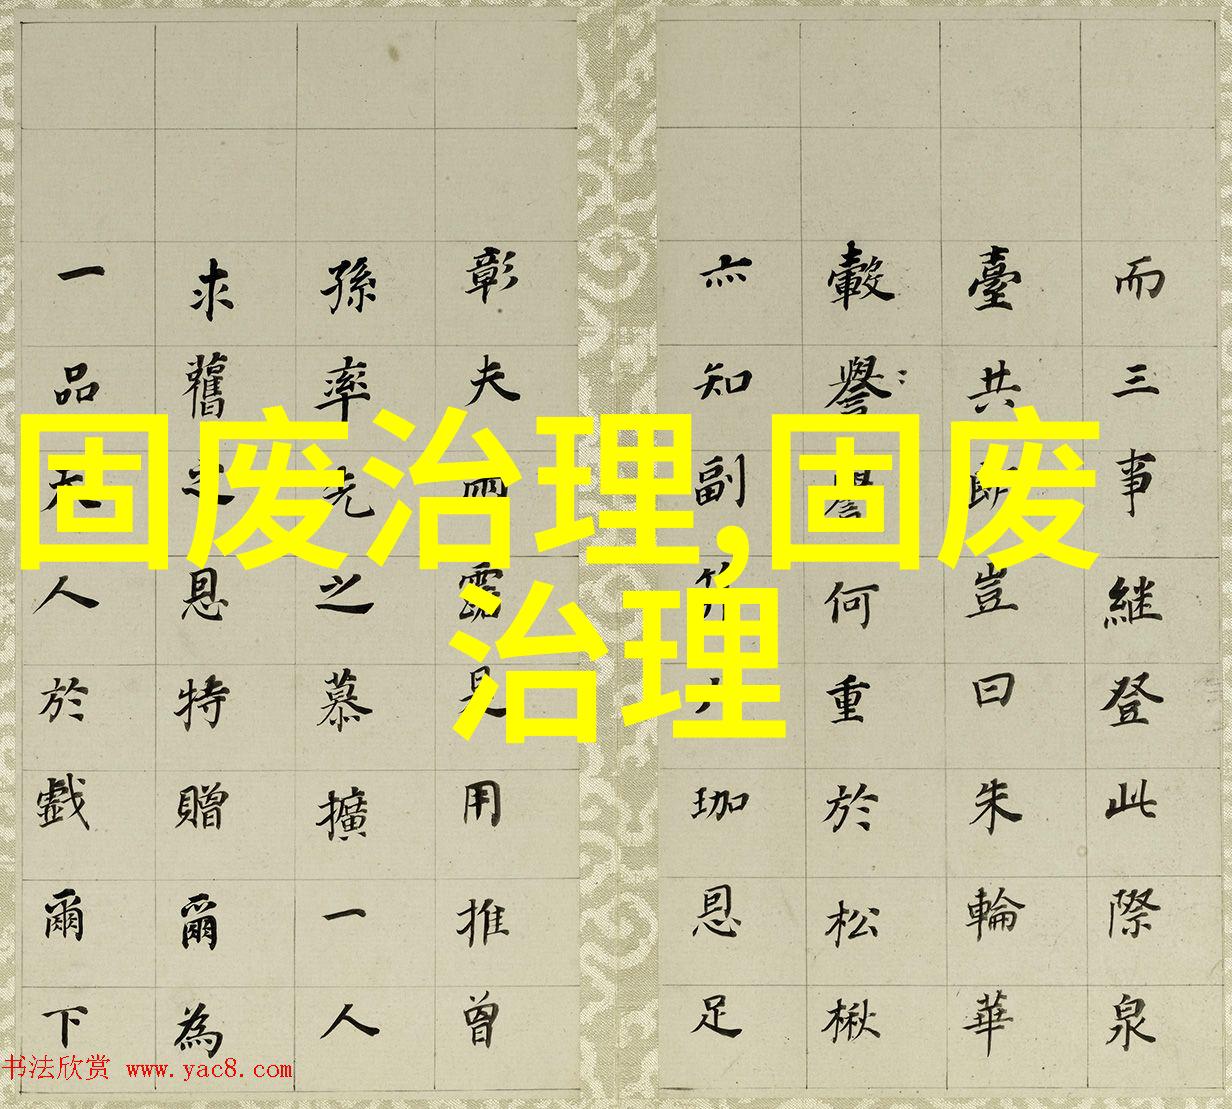 固废治理,固废
治理
而三事継登此際泉
臺共豈曰朱輪華
轂譽譽何重於松楸
亦知副笄六珈恩足
彰夫四是用推曾
孫率先之慕擴一人
求舊之恩特贈爾為
一品夫人於戲爾下
书法欣赏 www.yac8.com